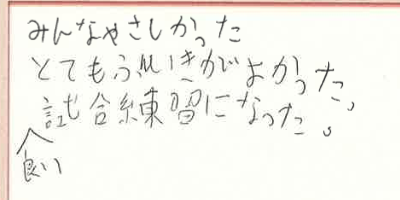 みんなやさしかった
とてもふんいきがよかった、
試合練習になった。
良い